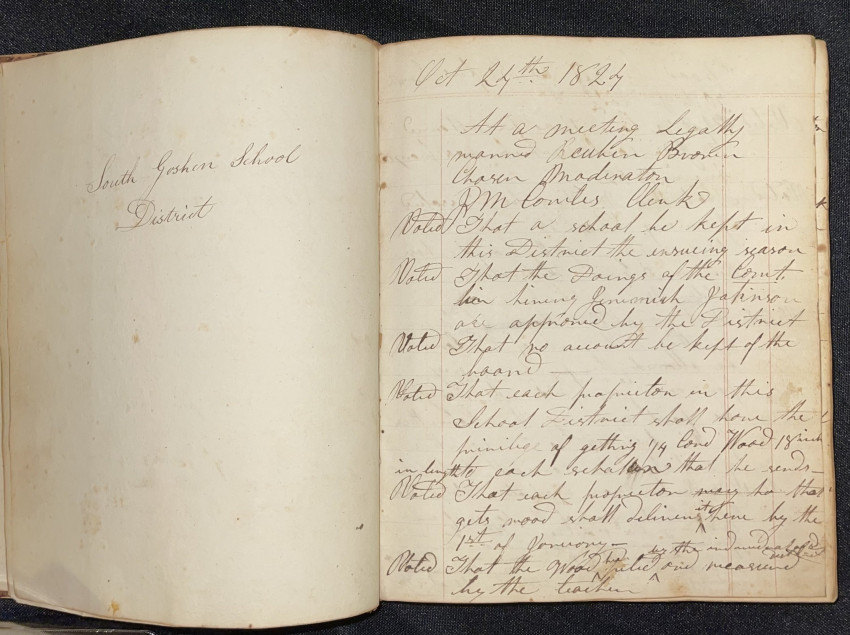 South Goshen School
District
Oct 24th 1824
At a meeting Legally
manned Reuben Brown
Chosen Moderator
Clerk
Voted That a school be kept in
this District the ensueing season
Voted That the Doings of the Comt.
in hiring Jeremiah
are approved by the District
Voted That no account be kept of the
board
Voted That each proprietor in this
School District shall have the
privilege of getting 1/4 Cord Wood 18 inch
in length to each scholar that he sends
Voted That each proprietor may ha that
gets wood shall deliver it here by the
1st of January
Voted That the Wood be and measured
by the teacher